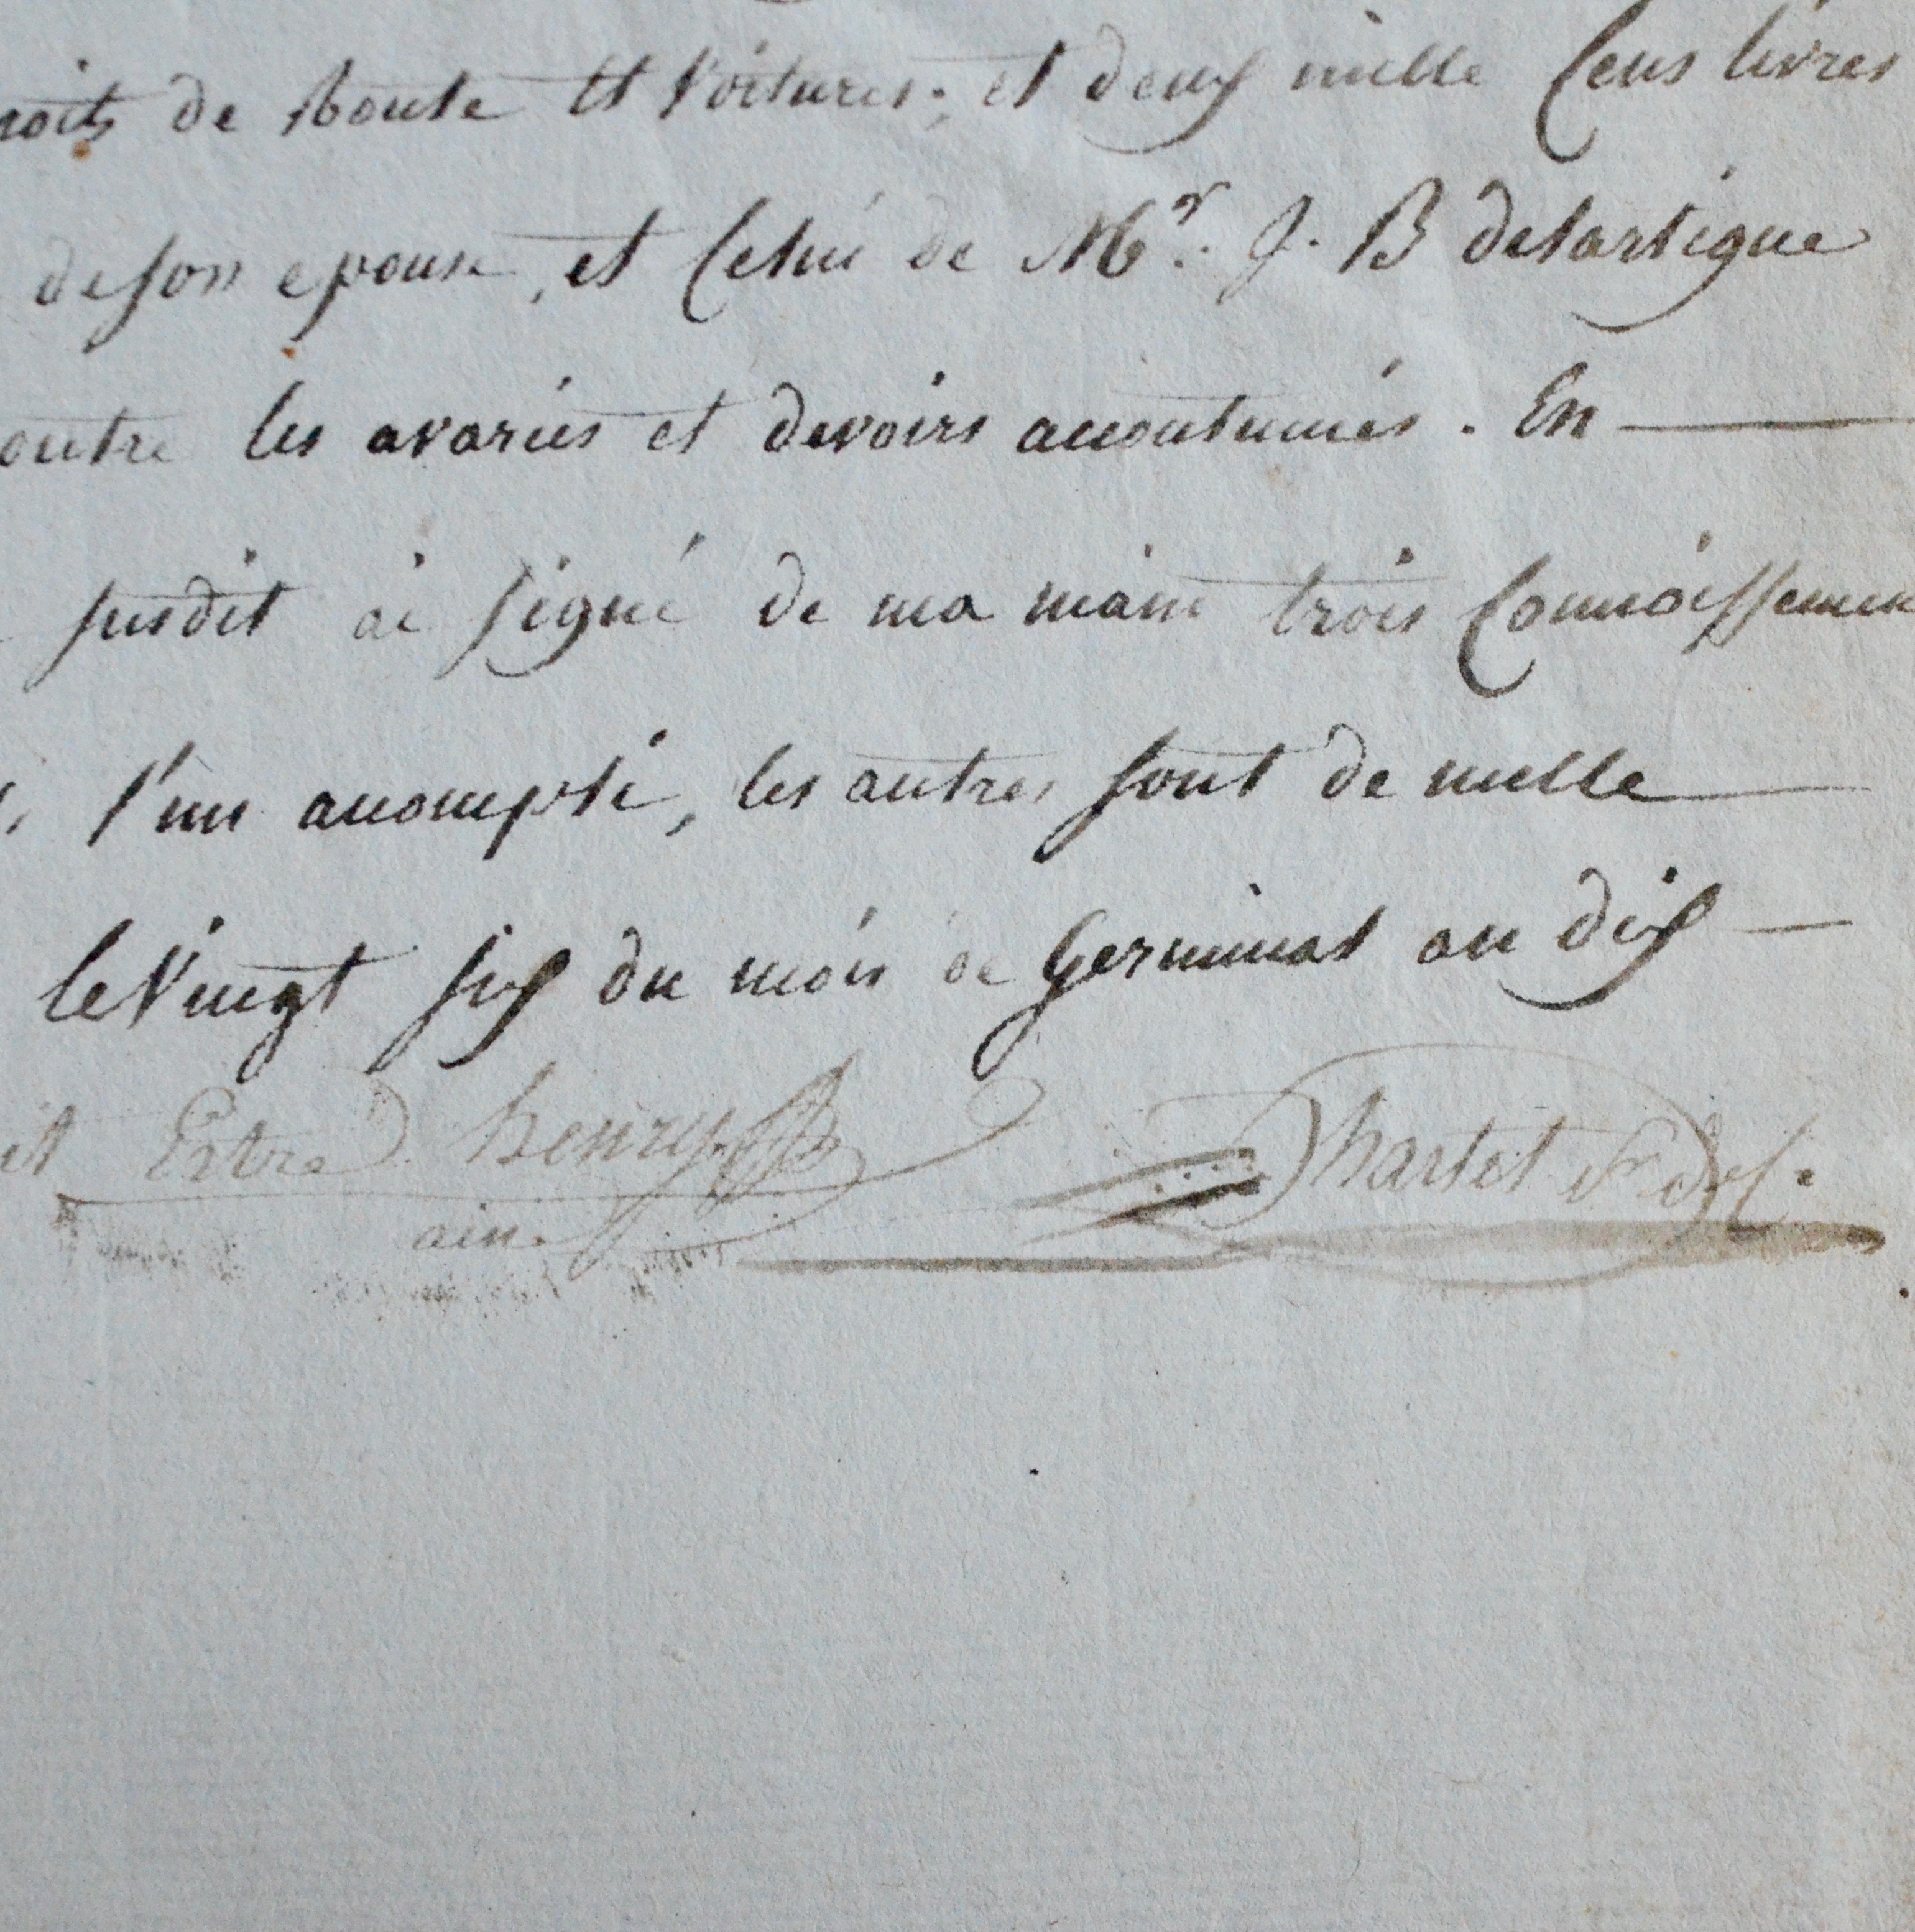 de Route et Voitures; et deux mille Cens livres
de son epouse, et Celui de Mr. J. B delartigue
outre les avaries et devoirs acoutumés. En
susdit ai signé de ma main trois Connoissemen
l'un acompli, les autres sont de nulle
le Vingt six du mois de Germinal an dix
henry